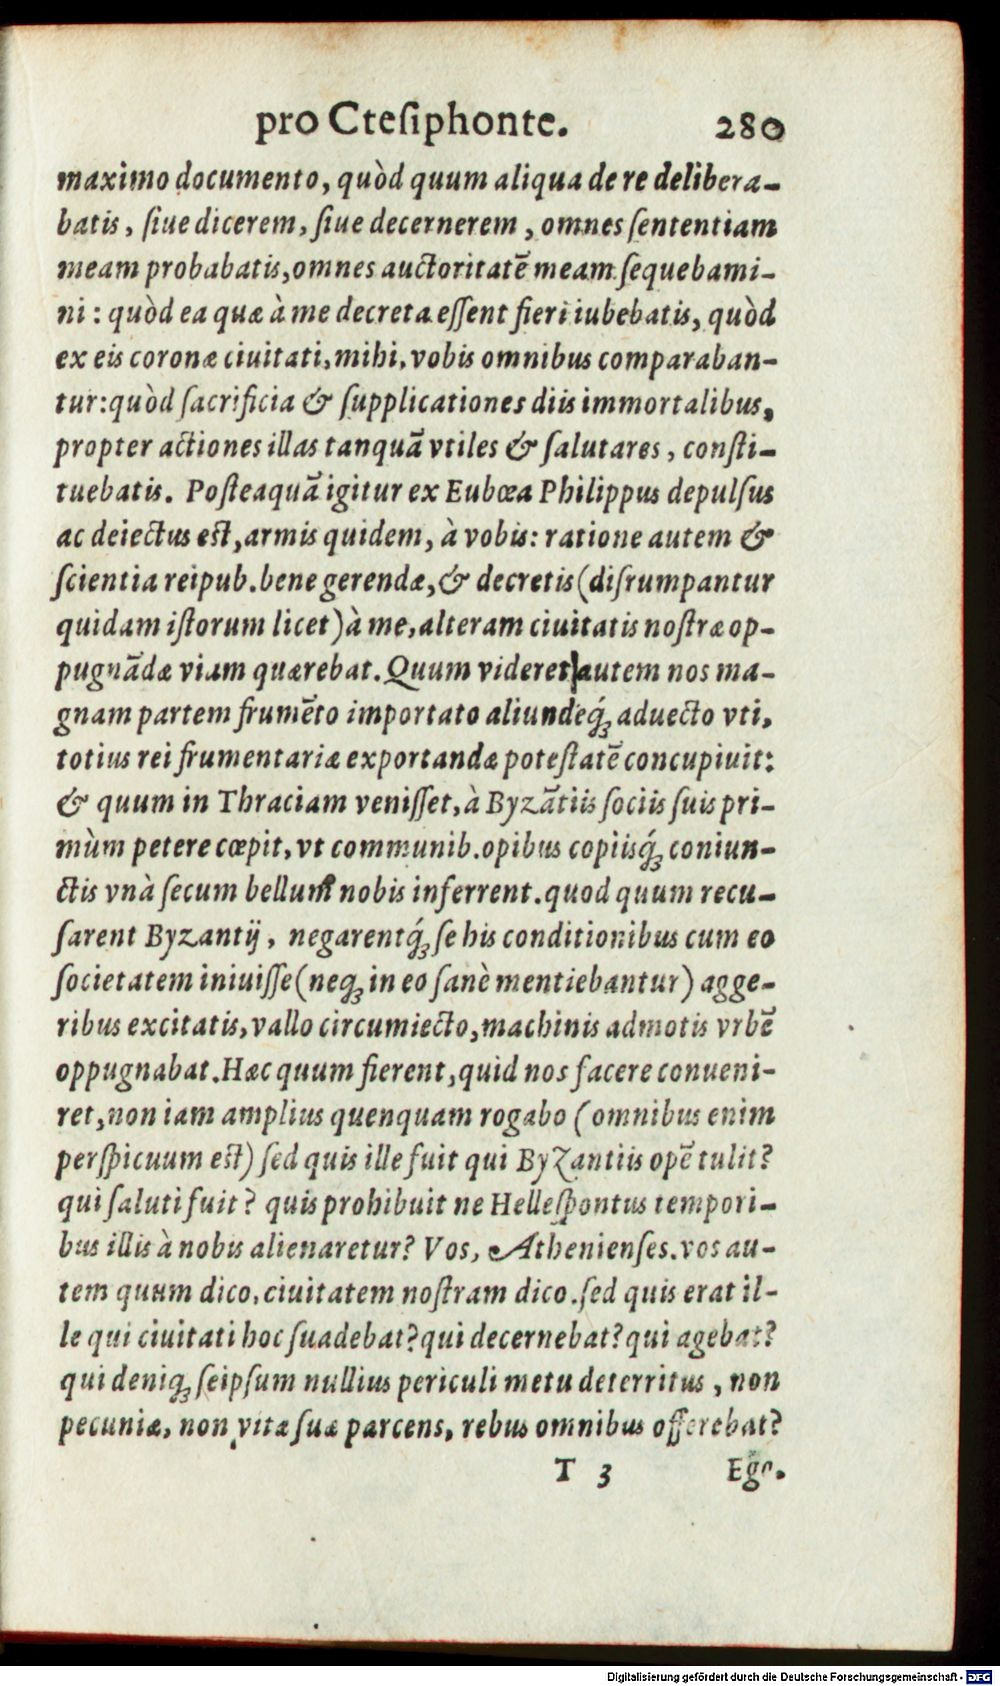 pro Cteſiphonte. 280
maximo documento, quòd quum aliqua de re delibera-
batis, ſiue dicerem, ſiue decernerem, omnes ſententiam
meam probabatis, omnes auctoritatē meam ſequebami-
ni: quòd ea quæ à me decreta eſſent fieri iubebatis, quòd
ex eis coronæ ciuitati, mihi, vobis omnibus comparaban-
tur: quòd ſacrificia & ſupplicationes diis immortalibus,
propter actiones illas tanquā vtiles & ſalutares, conſti-
tuebatis. Poſteaquā igitur ex Eubœa Philippus depulſus
ac deiectus eſt, armis quidem, à vobis: ratione autem &
ſcientia reipub. bene gerendæ, & decretis (diſrumpantur
quidam iſtorum licet) à me, alteram ciuitatis noſtræ op-
pugnādæ viam quærebat. Quum videret autem nos ma-
gnam partem frumēto importato aliundeq́ꝫ aduecto vti,
totius rei frumentariæ exportandæ poteſtatē concupiuit:
& quum in Thraciam veniſſet, à Byzātiis ſociis ſuis pri-
mùm petere cœpit, vt communib. opibus copiisq́ꝫ coniun-
ctis vnà ſecum bellum nobis inferrent. quod quum recu-
ſarent Byzantij, negarentq́ꝫ ſe his conditionibus cum eo
ſocietatem iniuiſſe (neqꝫ in eo ſanè mentiebantur) agge-
ribus excitatis, vallo circumiecto, machinis admotis vrbē
oppugnabat. Hæc quum fierent, quid nos facere conueni-
ret, non iam amplius quenquam rogabo (omnibus enim
perſpicuum eſt) ſed quis ille fuit qui Byzantiis opē tulit?
qui ſaluti fuit? quis prohibuit ne Helleſpontus tempori-
bus illis à nobis alienaretur? Vos, Athenienſes. vos au-
tem quum dico, ciuitatem noſtram dico. ſed quis erat il-
le qui ciuitati hoc ſuadebat? qui decernebat? qui agebat?
qui deniqꝫ ſeipſum nullius periculi metu deterritus, non
pecuniæ, non vitæ ſuæ parcens, rebus omnibus offerebat?
T 3 Ego.
Digitalisierung gefördert durch die Deutsche Forschungsgemeinschaft - DFG